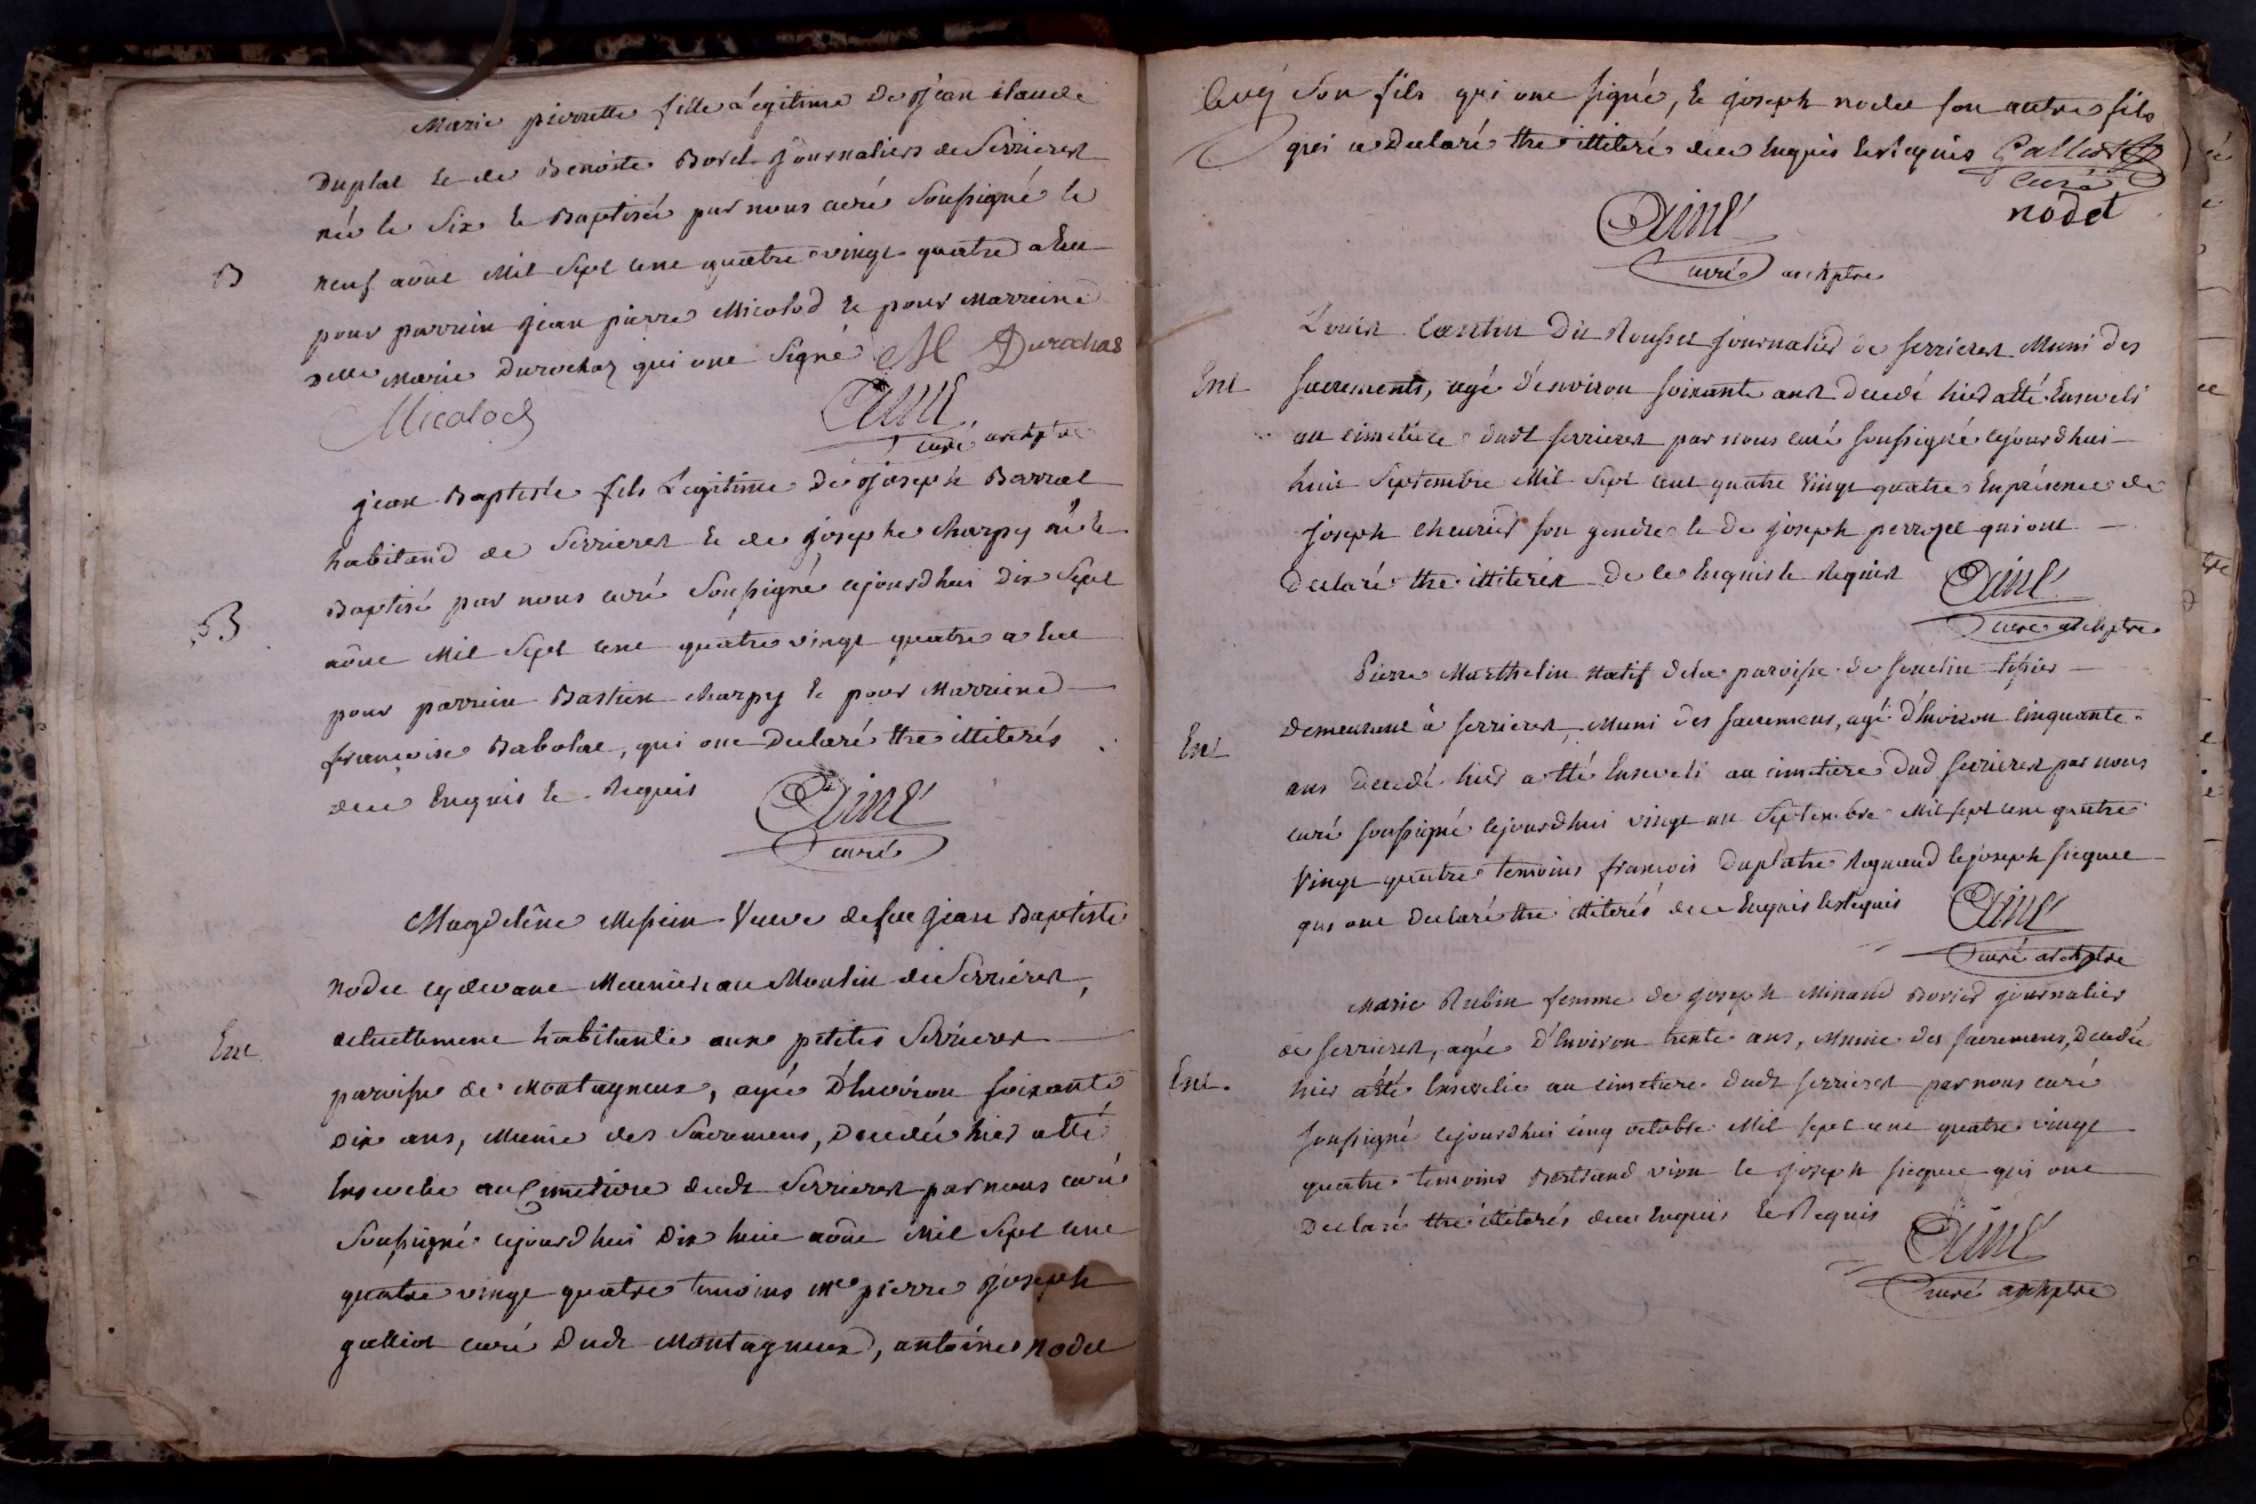 Marie pierrette fille Légitime De Jean claude
Duplat et de Benoite Borel Journaliers de Serrieres
née le Six et Baptisée par nous curé Soussigné le
B
neuf aôut Mil Sept cent quatre vingt quatre a Eu
pour parrein jean pierre Micolod et pour Marreine
delle Marie Durochaz qui ont Signé M Durochas
Micolod
Aimé
curé archiptre
jean Baptiste fils Legitime De joseph Barral
habitand de Serrieres et de josephe charpy né et
Baptisé par nous curé Soussigné cejourdhui Dix Sept
B
aôut Mil Sept cent quatre vingt quatre a Eu
pour parrein Bastien charpy et pour Marreine
francoise Babolat, qui ont Declaré Etre illiterés
de ce Enquis et Requis
Aimé
curé
Magdeléne Messein Veuve de feu jean Baptiste
Nodet cy devant Meunier au Moulin de Serrieres,
actuellement habitante aux petites Serrieres
Ent
paroisse de Montagneux, agée D'Environ soixante
Dix ans, Munie des Sacremens, Decedée hier a Eté
Ensevelie au Cimetiere dudt Serrieres par nous curé
Soussigné cejourdhui Dix huit aôut Mil Sept cent
quatre vingt quatre temoins Me pierre joseph
galliot curé Dudt Montagneux, antoine Nodet
Son fils qui ont signé, Et joseph nodet son autre fils
qui a Declaré Etre illiteré de ce Enquis Et Requis Galliot
curé
nodet
Aimé
curé archiptre
Louis Dit Rousset journalier de serrieres Muni des
Ent
sacrements, agé d'environ soixante ans Decedé hier a Eté Enseveli
au cimetiere dudt serrieres par nous curé soussigné cejourdhui
huit Septembre Mil Sept cent quatre Vingt quatre En présence de
joseph son gendre et De joseph qui ont
Declaré Etre illiterés De ce Enquis et Requis
Aimé
curé archiptre
Pierre Marthelin Natif de la paroisse de
Demeurant à serrieres, Muni des sacremens, agé d'Environ Cinquante
Ent
ans Decedé hier a Eté Enseveli au cimetiere Dud serrieres par nous
curé soussigné cejourdhui vingt un Septembre Mil sept cent quatre
Vingt quatre temoins francois Duplatre et joseph
qui ont Declaré Etre illiterés de ce Enquis Et Requis
Aimé
curé archiptre
Marie Rubin femme de joseph Minand journalier
de serrieres, agée d'Environ trente ans, Munie des sacremens, Decedée
Ent.
hier a Eté Ensevelie au cimetiere dudt serrieres par nous curé
soussigné cejourdhui cinq octobre Mil sept cent quatre vingt
quatre temoins Bertrand et joseph qui ont
Declaré Etre illiterés de ce Enquis Et Requis
Aimé
curé archiptre